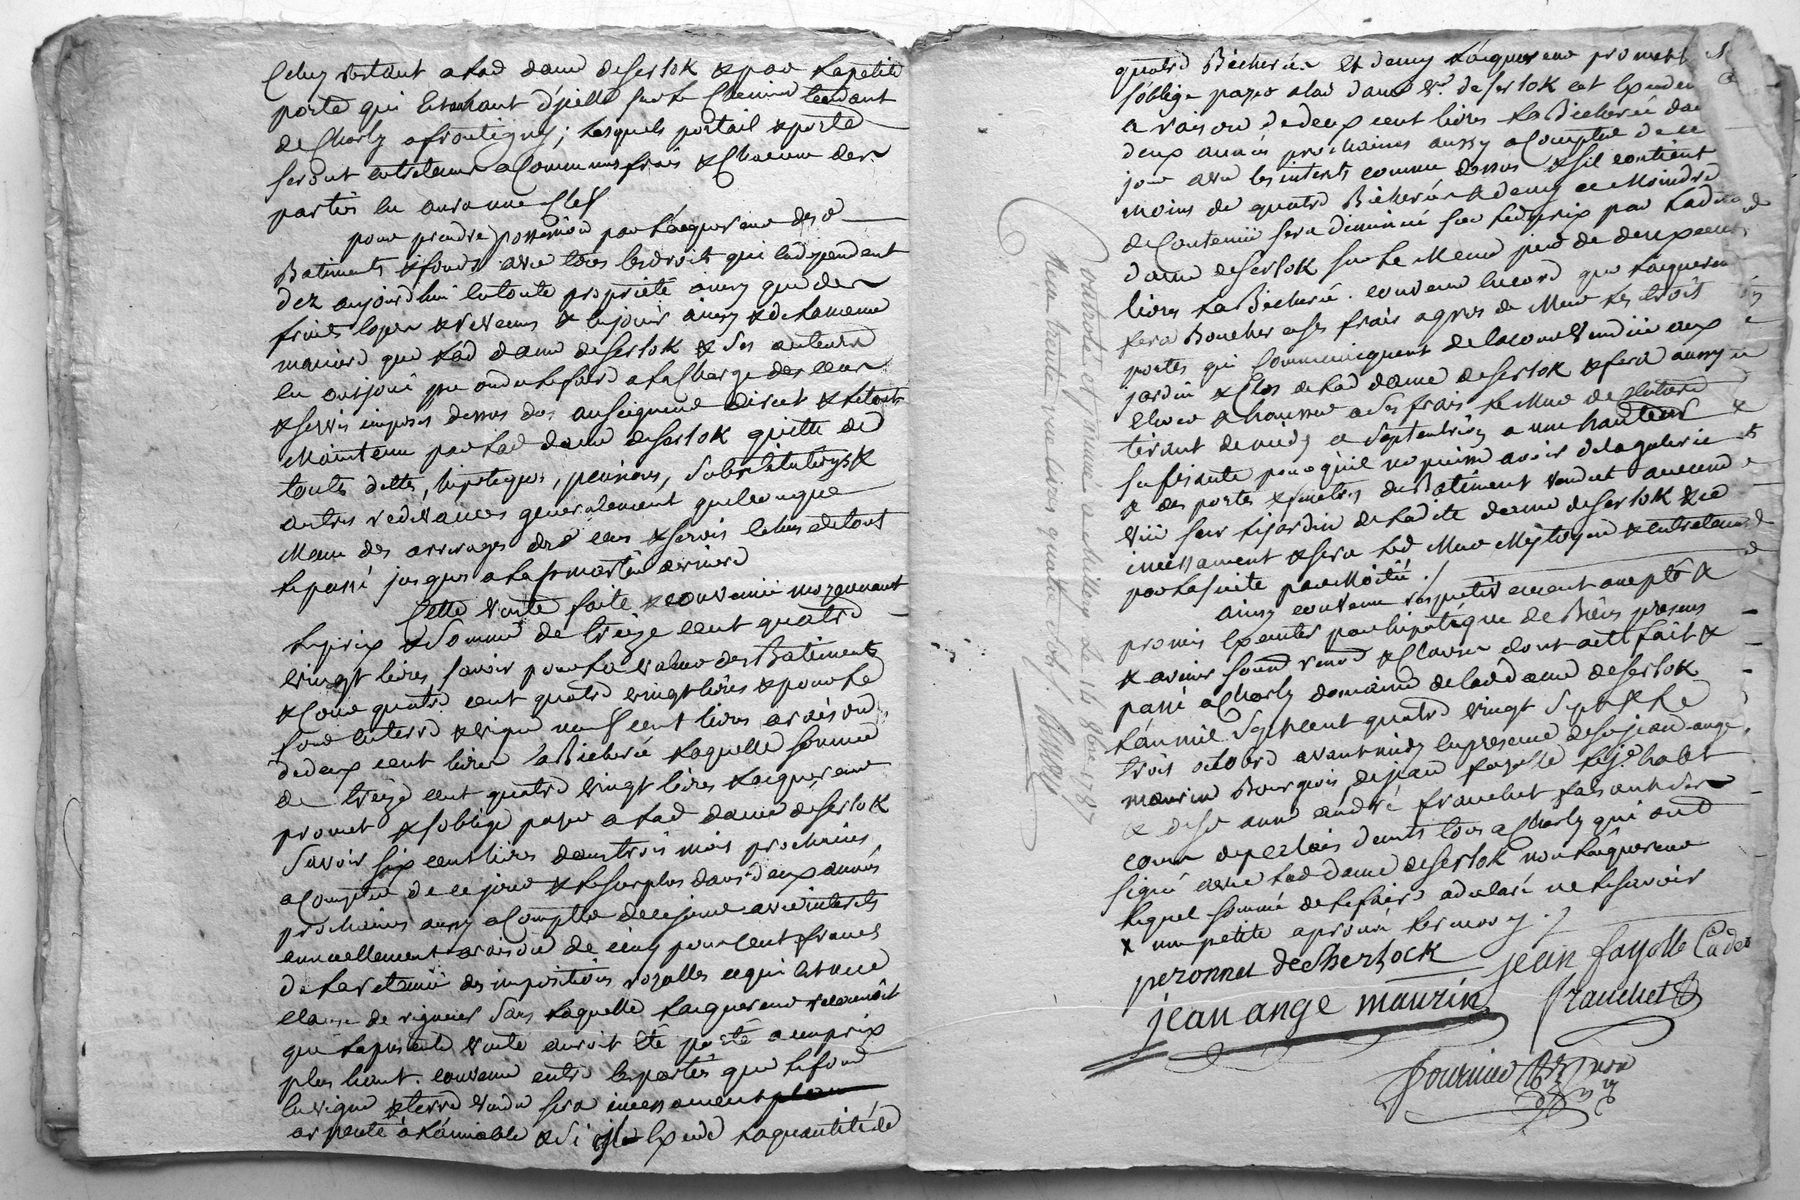 Celuy restant a lad dame deSerlok & par la petite
porte qui est au haut d'icelle sur le chemin tendant
de Charly a frontigny; lesquels portail & porte
seront entretenus a Communs frais & Chacune des
parties en aura une Clef
pour prendre possession par l'acquereur des d
Batiments & fonds avec tous les droits qui en dependent
dez aujourdhui en toute proprieté ainsy que des
fruits loyer & revenus & en jouir ainsy & de la meme
maniere que lad dame deSerlok & ses auteurs
en ont joui pu ou du le faire a la Charge des cens
& servis imposés dessus dus au seigneur direct & le tout
Maintenu par lad dame deSerlok quitte de
touts dettes, hipoteques, pensions, substitutions &
autres redevances generalement quelconque
Meme des arrerages des d cens & servis echus de tout
le passé jusques a la St martin derniere
Cette vente faite & convenüe moyennant
le prix & Somme de treize cent quatre
vingt livres, savoir pour la valeur des Batiments
& Cour quatre cent quatre vingt livres & pour le
fond en terre & vigne neuf cent livres a raison
de deux cent livres la Bicherée laquelle somme
de treize cent quatre vingt livres l'acquereur
promet & s'oblige payer a lad dame deSerlok
Savoir six cent livres dans trois mois prochains
a Compter de ce jour & le surplus dans deux années
prochaines aussy a Compter de ce jour avec interets
annuellement a raison de cinq pour cent francs
de la retenüe des impositions royalles ce qui est une
clause de rigueur sans laquelle l'acquereur reconnoit
que la presente vente auroit été porté a un prix
plus haut. convenu entre les parties que le fond
en vigne & terre vendu sera incessament
arpenté a l'amiable & si il excede la quantité de
quatre Bicherées et demy l'acquereur promet &
s'oblige payer a lad dame Ve. deSerlok cet excedent
a raison de deux cent livres la Bicherée dans
deux années prochaines aussy a Compter de ce
jour avec les interets comme dessus & s'il contient
moins de quatre Bicherées & demy ce Moindre
de Contenüe sera diminué sur led prix par lad
dame deSerlok sur le meme pied de deux cent
livres la Bicherée. convenu encord que l'acquereur
fera Boucher a ses frais a gros de Mur les trois
portes qui Communiquent de la cour vendüe aux
jardin & Clos de lad dame deSerlok & fera aussy
elever & hausser a ses frais le Mur de cloture
tirant de midy a Septentrion a une hauteur
sufisante pour qu'il ne puisse avoir de la galerie
& des portes & fenetres du Batiment vendu aucune
vüe sur le jardin de ladite dame deSerlok & ce
incessament & sera led Mur Mitoyen & entretenu
par la suite par Moitié ./
ainsy convenu respectivement accepté &
promis executer par hipoteque de Biens presens
& avenir soumis renon & Clauses dont acte fait &
passé a Charly domaine de lad dame deSerlok
l'an mil Sept cent quatre vingt Sept & le
trois octobre avant midy en presence de Sr jean ange
maurin Bourgeois, de jean fayolle habit
& de Sr andré franchet
demts tous a Charly qui ont
signé avec lad dame deSerlok non l'acquereur
lequel sommé de le faire a declaré ne le savoir
& une petite aprouvé les mots ./
peronnet de Sherlock
jean fayolle Cadet
jean ange maurin
franchet
fournier
Controlé et a Millery le 14 8bre 1787
Reçu trente une livres quatre sols